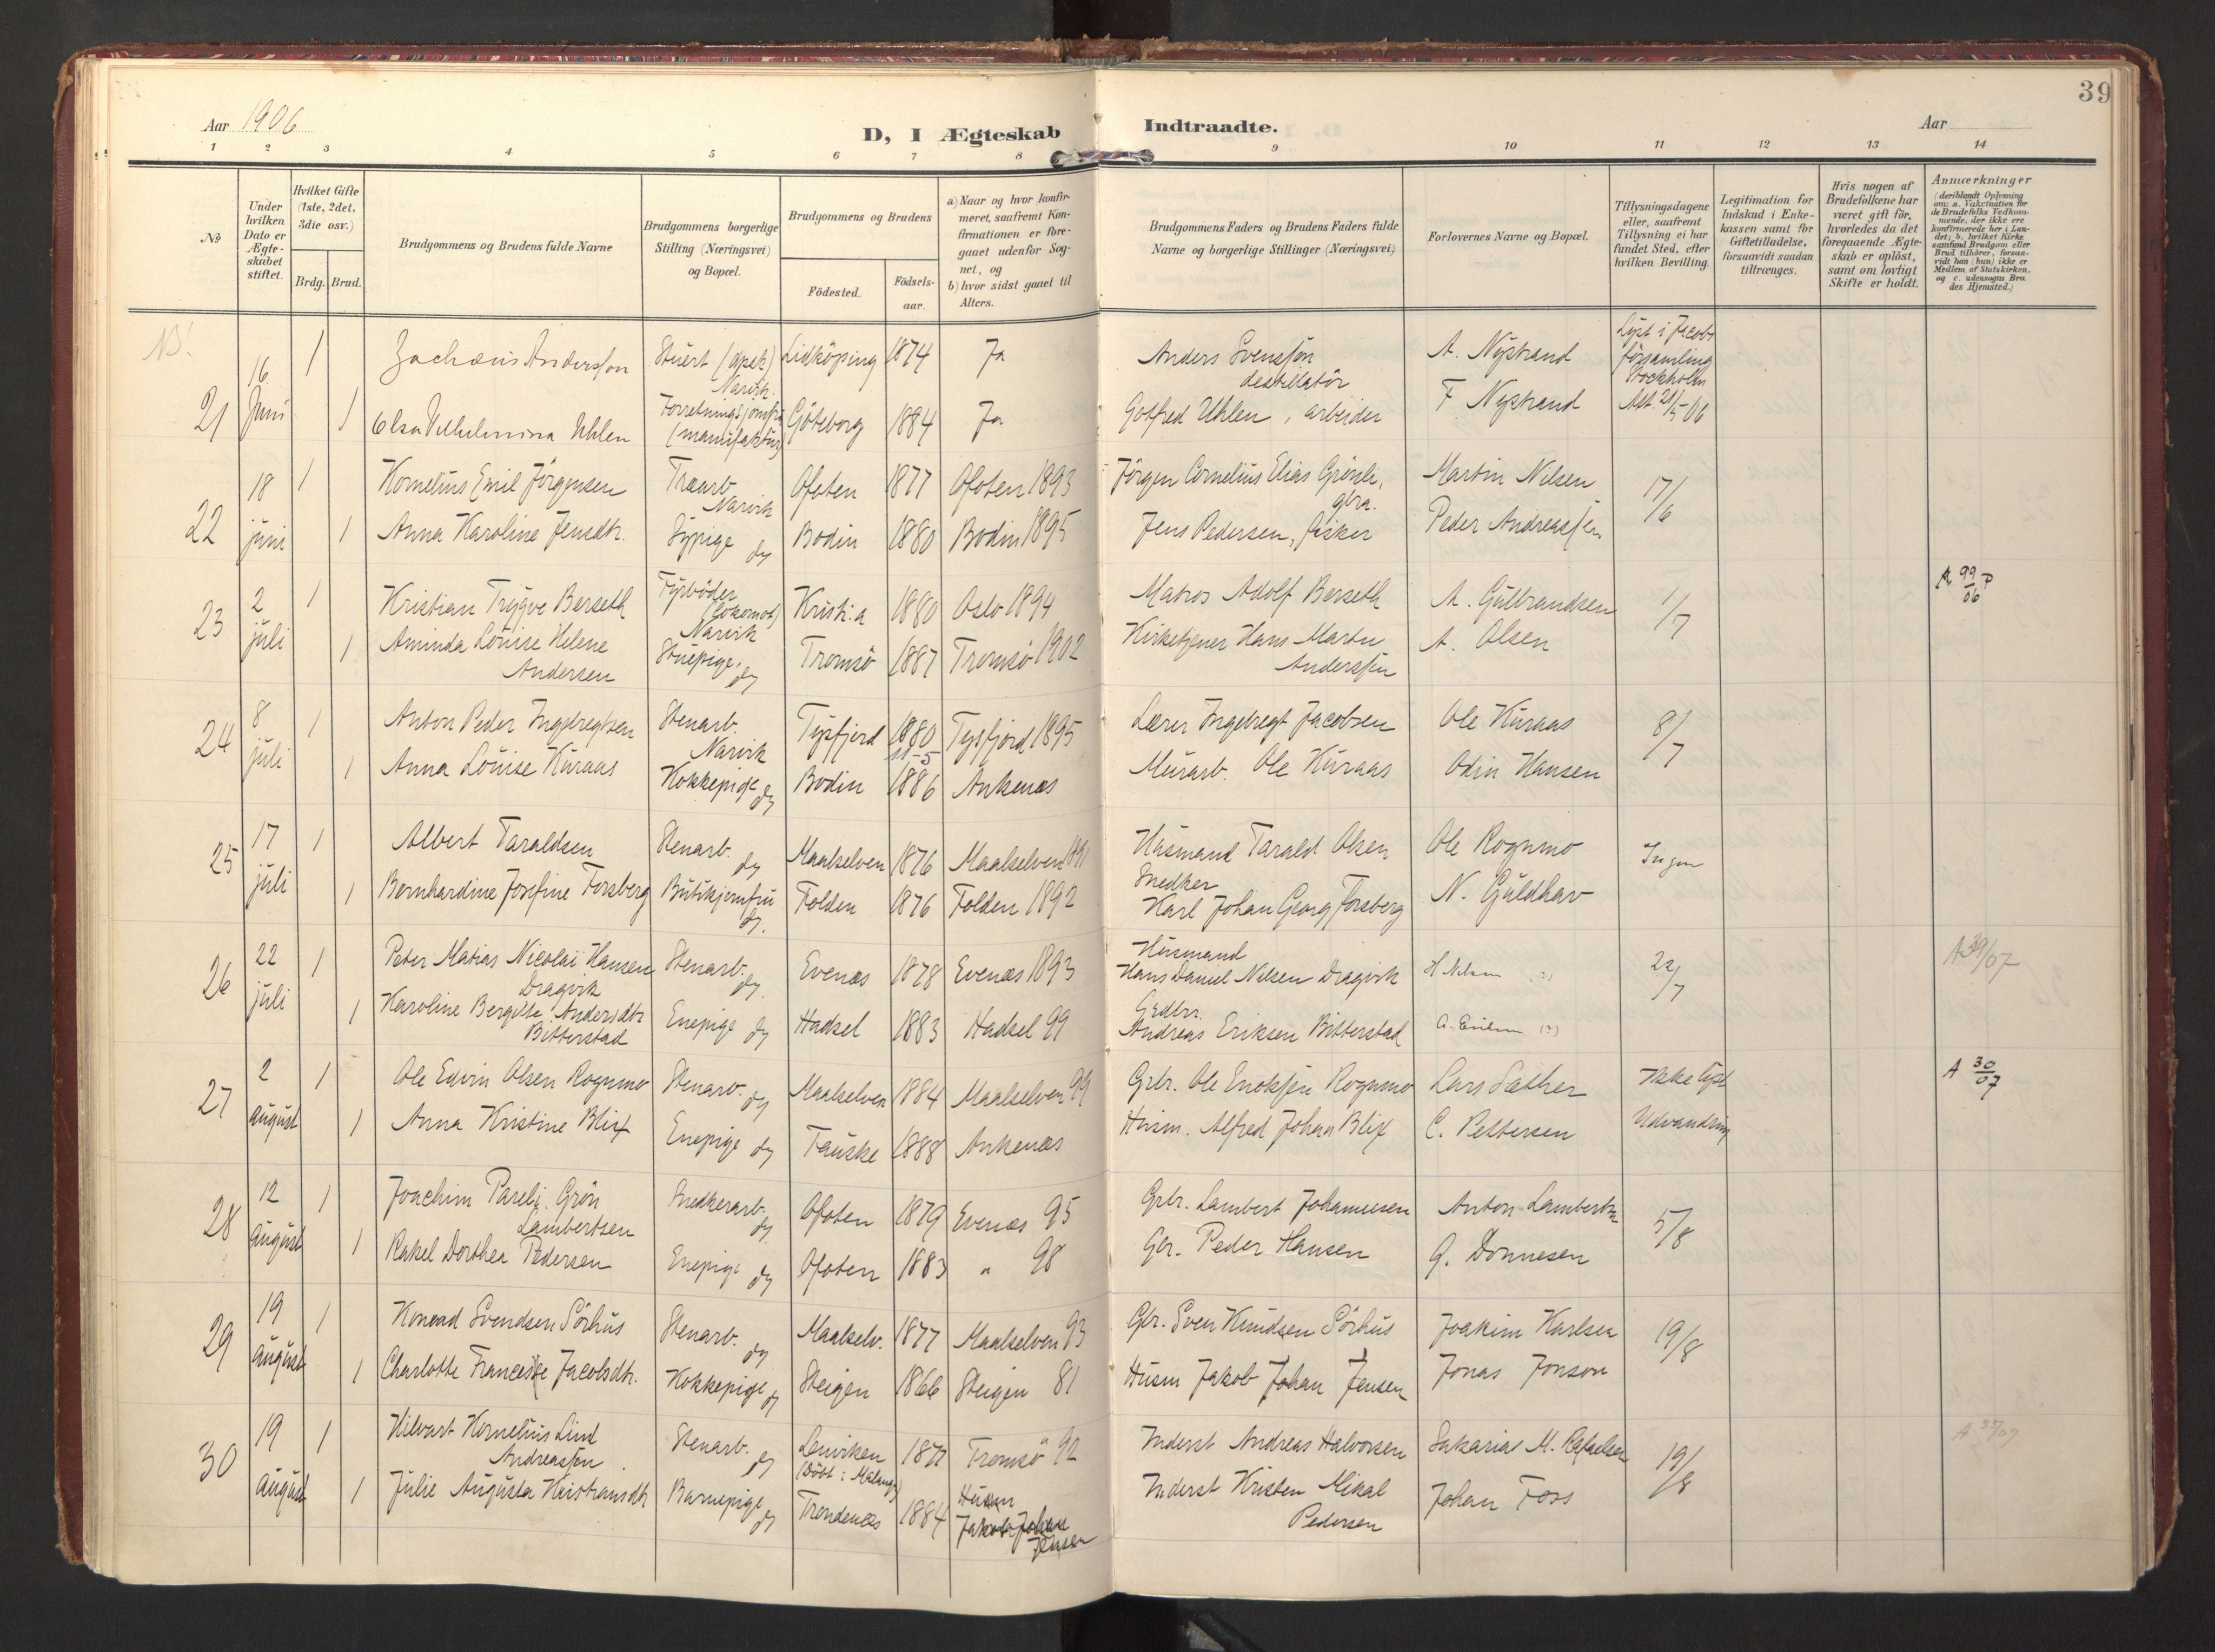 39
Aar 1906
D, I Ægteskab Indtraadte.
Aar
1 2 3 4 5 6 7 8 9 10 11 12 13 14
No
Under hvilken Dato er Ægteskabet stiftet.
Hvilket Gifte (1ste, 2det, 3die osv.)
Brdg. Brud.
Brudgommens og Brudens fulde Navne
Brudgommens borgerlige Stilling (Næringsvei) og Bopæl.
Brudgommens og Brudens
Födested.
Födsels-aar.
a) Naar og hvor konfirmeret, saafremt Konfirmationen er foregaaet udenfor Sognet, og
b) hvor sidst gaaet til Alters.
Brudgommens Faders og Brudens Faders fulde Navne og borgerlige Stillinger (Næringsvei)
Forlovernes Navne og Bopæl.
Tillysningsdagene eller, saafremt Tillysning ei har fundet Sted, efter hvilken Bevilling.
Legitimation for Indskud i Enkekassen samt for Giftetilladelse, forsaavidt saadan tiltrænges.
Hvis nogen af Brudefolkene har været gift för, hvorledes da det foregaaende Ægteskab er oplöst, samt om lovligt Skifte er holdt.
Anmærkninger
(deriblandt Oplysning om: a. Vaccination for de Brudefolks Vedkommende, der ikke ere konfirmerede her i Landet; b. hvilket Kirkesamfund Brudgom eller Brud tilhörer, forsaavidt han (hun) ikke er Medlem af Statskirken, og c. udensogns Brudes Hjemsted.)
21
16 Juni
1 Zachæus Andersson Stuert (apek) Narvik Lidköping 1874 Ja Anders Svensson destillatör A. Nystrand
Lyst i Jacobs församling Stockholm Att. 21/5-06
1 Elsa Vilhelmina Uhlen Forretningsjomfru (manufaktur) Göteborg 1884 Ja Gotfred Uhlen, arbeider F Nystrand
22
18 juni
1 Kornelius Emil Jörgensen Traarb. Narvik Ofoten 1877 Ofoten 1893 Jörgen Cornelius Elias Grönli, gbra. Martin Nilsen 17/6
1 Anna Karoline Jensdtr. Sypige dg Bodin 1880 Bodin 1895 Jens Pedersen, fisker Peder Andreassen
23
2 juli
1 Kristian Trygve Berseth Fyrböder (lokomot) Narvik Kristi.a 1880 Oslo 1894 Matros Adolf Berseth A. Gulbrandsen 1/7 A 99/06
1 Aminda Louise Helene Andersen Stuepige, dg Tromsö 1887 Tromsö 1902 Kirketjener Hans Martin Anderssen A. Olsen
24
8 juli
1 Anton Peder Ingebregtsen Stenarb. Narvik Tysfjord 1880 Tysfjord 1895 Lærer Ingebregt Jacobsen Ole Kuraas 8/7
1 Anna Louise Kuraas Kokkepige dg Bodin 1886 Ankenæs Murarb. Ole Kuraas Odin Hansen
25
17 juli
1 Albert Taraldsen Stenarb. dg Maalselven 1876 Maalselven 1891 Husmand Tarald Olsen Ole Rognmo Ingen
1 Bernhardine Josefine Forsberg Butikjomfru dg. Folden 1876 Folden 1892 Snedker Karl Johan Georg Forsberg N. Guldhav
26
22 juli
1 Peter Matias Nicolai Hansen Dragvik Stenarb. dg. Evenæs 1878 Evenæs 1893 Husmand Hans Daniel Nilsen Dragvik H Nilsen 22/7 A 39/07
1 Karoline Bergitte Andersdtr Bitterstad Enepige dg Hadsel 1883 Hadsel 99 Grdbr. Andreas Eriksen Bitterstad A. Eriksen (?)
27
2 august
1 Ole Edvin Olsen Rognmo Stenarb. dg Maalselven 1884 Maalselven 99 Grbr. Ole Enoksen Rognmo Lars Sæther Ikke lyst A 30/07
1 Anna Kristine Blix Enepige dg Fauske 1888 Ankenæs Husm. Alfred Johan Blix C. Pettersen Udvandring
28
12 August
1 Joachim Pareli Grön Lambertsen Snedkerarb. dg Ofoten 1879 Evenæs 95 Grbr. Lambert Johannesen Anton Lambertsen 5/8
1 Rakel Dorthea Pedersen Enepige dg Ofoten 1883 " 98 Gbr. Peder Hansen G. Donnesen
29
19 august
1 Konrad Svendsen Sörhus Stenarb. dg Maalselv. 1877 Maalselven 93 Gbr. Sven Knudsen Sörhus Joakim Karlsen 19/8
1 Charlotte Francese Jacobsdtr. Kokkepige dg Steigen 1866 Steigen 81 Husm Jakob Johan Jensen Jonas Jonson
30
19 August
1 Hilvart Kornelius Lind Andreassen Stenarb. dg Lenviken (Döbt i Malangen) 1877 Tromsö 92 Inderst Andreas Halvorsen Sakarias M. Rafaelsen 19/8
1 Julie Augusta Kristiansdtr Barnepige dg Trondenæs 1884 Husm Jakob Johan Jensen Inderst Kristen Mikal Pedersen Johan Foss